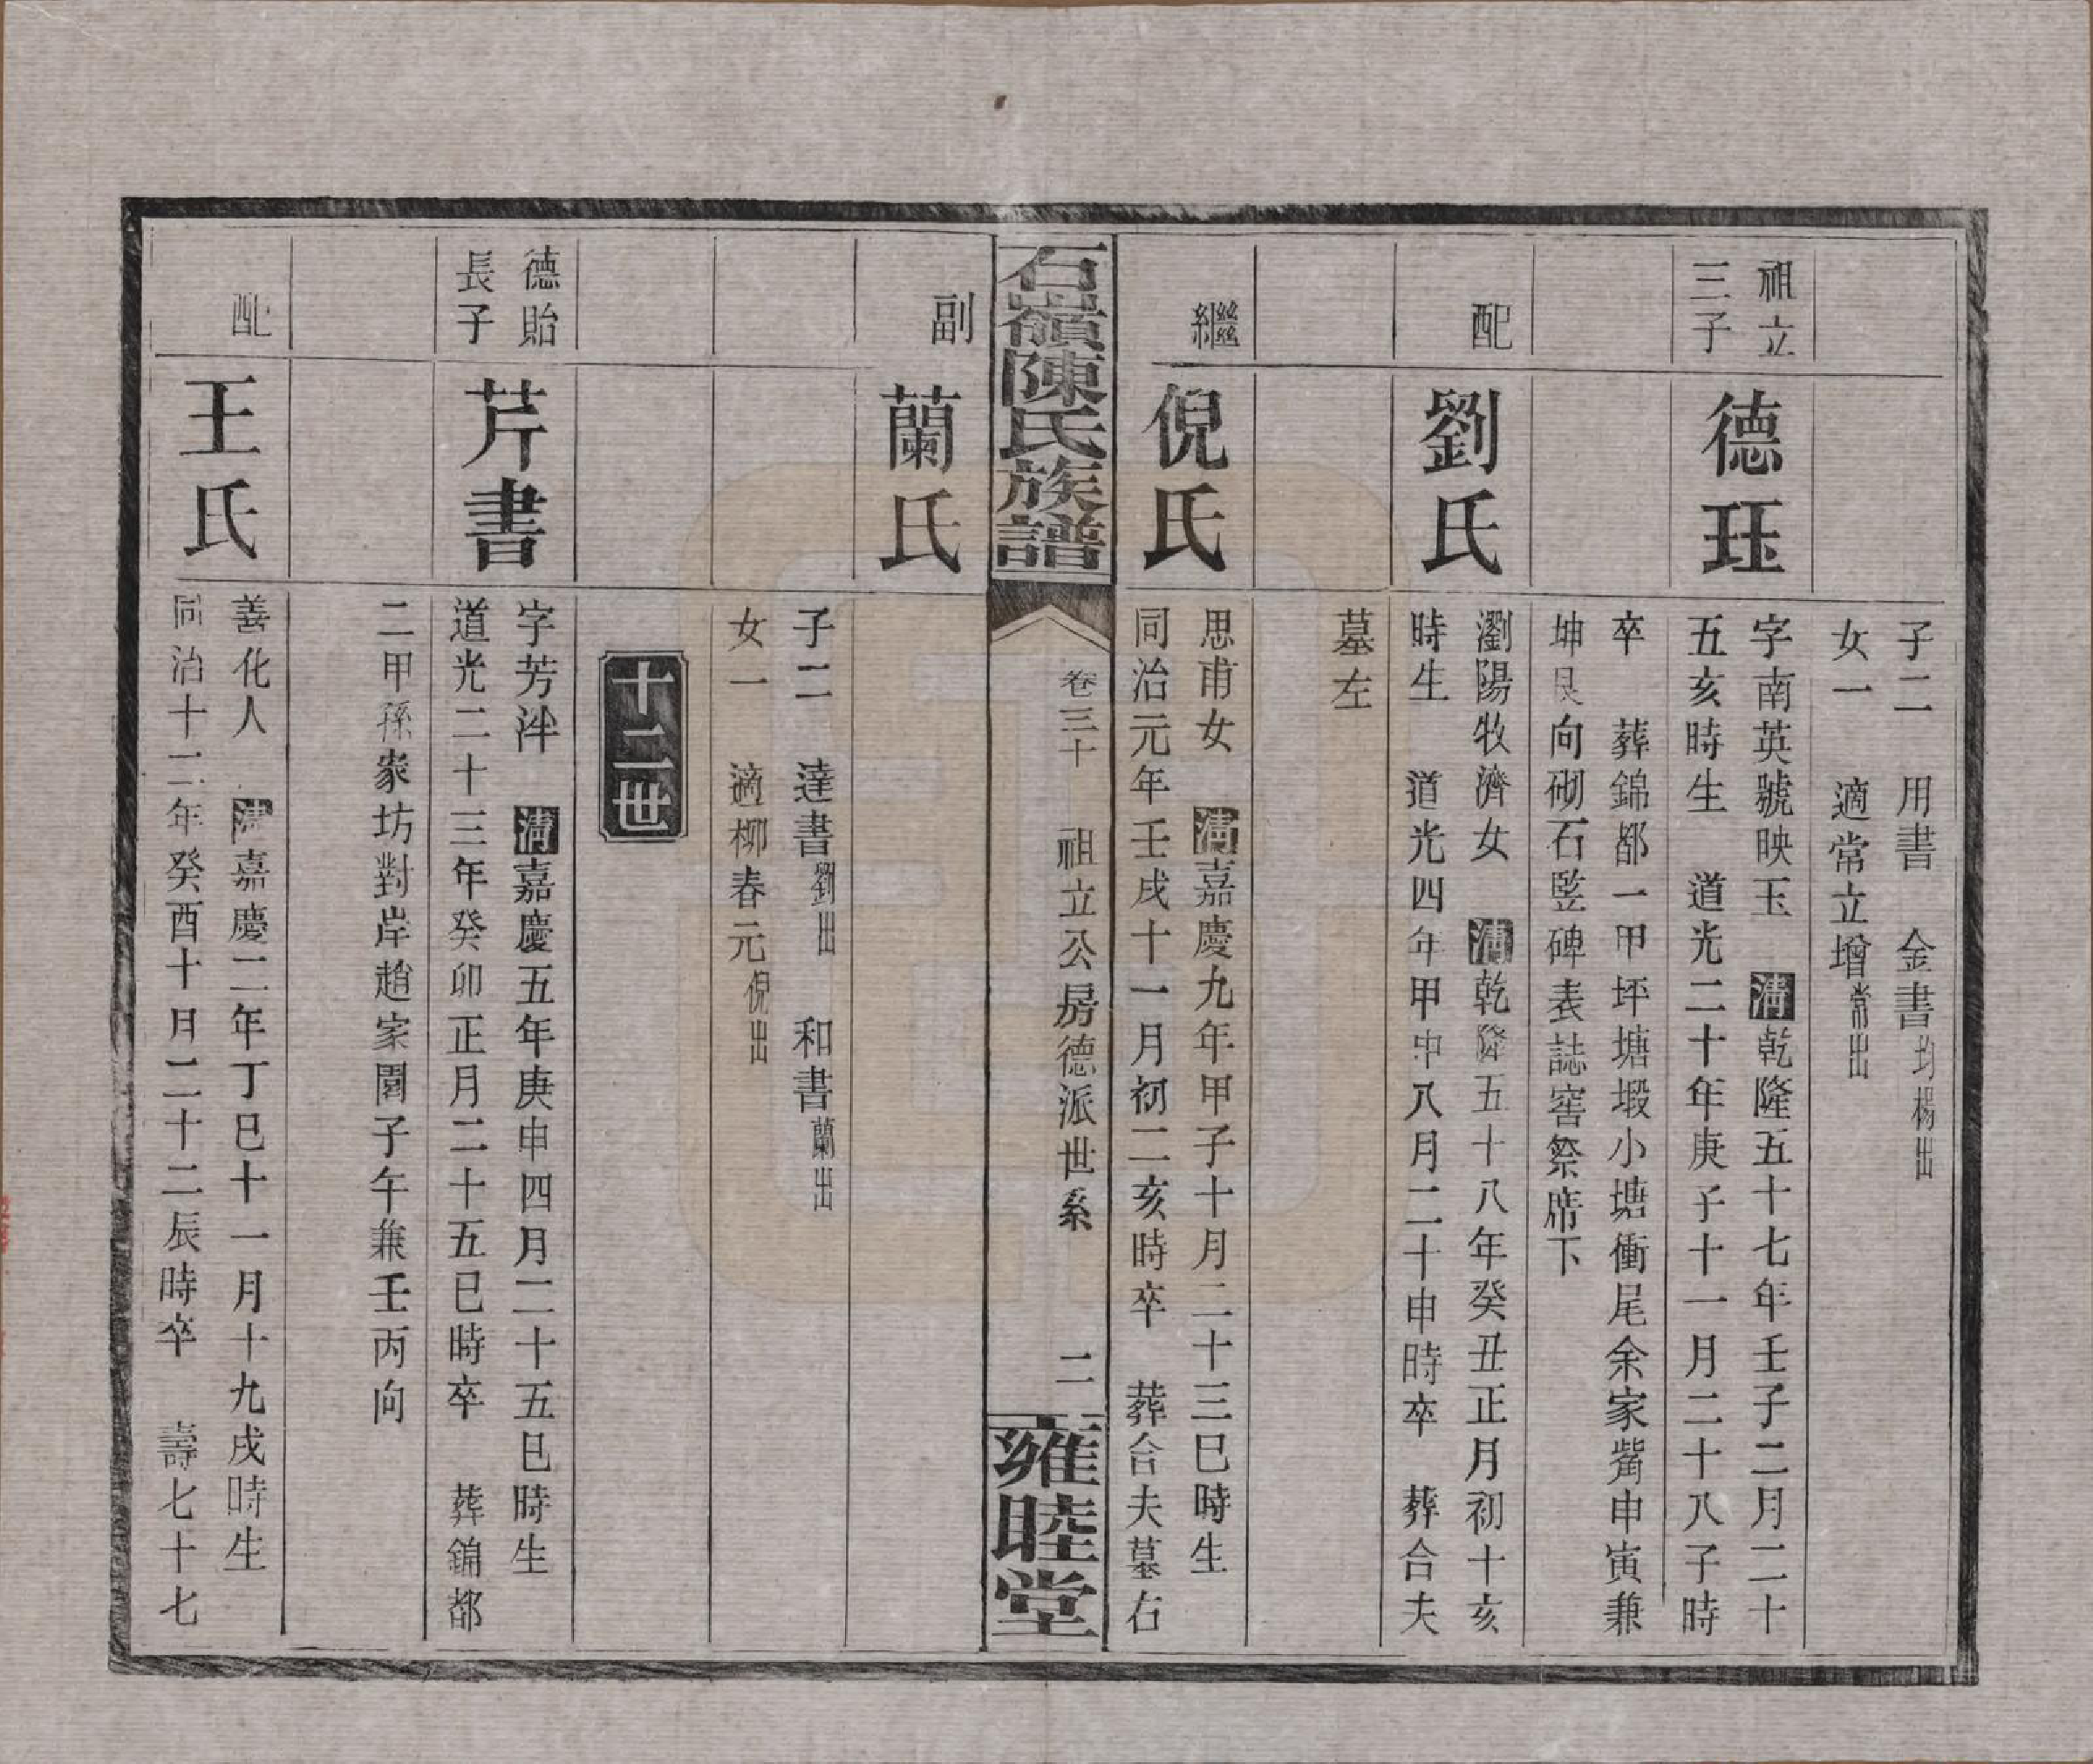 子二　用書　金書均楊出
女一　適常立增常出
祖立
三子
德珏
字南英號映玉　清乾隆五十七年壬子二月二十
五亥時生　道光二十年庚子十一月二十八子時
卒　葬錦都一甲坪塘塅小塘衝尾余家嵴申寅兼
坤艮向砌石竖碑表誌窖祭席下
配
劉氏
瀏陽牧濟女　清乾隆五十八年癸丑正月初十亥
時生　道光四年甲申八月二十申時卒　葬合夫
墓左
繼
倪氏
思甫女　清嘉慶九年甲子十月二十三巳時生
同治元年壬戌十一月初二亥時卒　葬合夫墓右
石嶺陳氏族譜
卷三十　祖立公房德派世系　二
雍睦堂
副
蘭氏
子二　達書劉出　和書蘭出
女一　適柳春元倪出
十二世
德貽
長子
芹書
字芳泮　清嘉慶五年庚申四月二十五巳時生
道光二十三年癸卯正月二十五巳時卒　葬錦都
二甲孫家坊對岸趙家園子午兼壬丙向
配
王氏
善化人　清嘉慶二年丁巳十一月十九戌時生
同治十二年癸酉十月二十二辰時卒　壽七十七